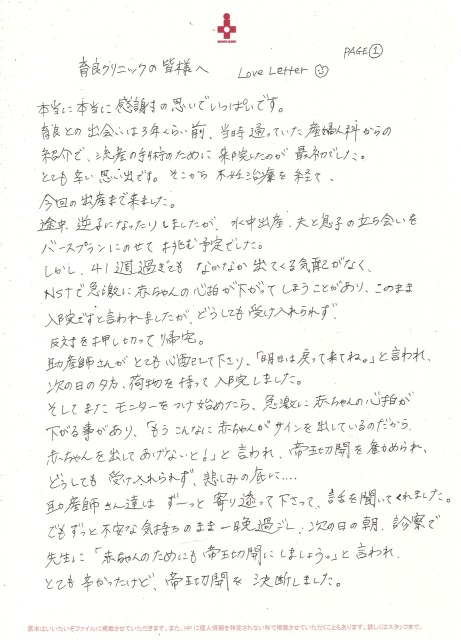 PAGE①
育良クリニックの皆様へ Love Letter ☺
本当に本当に感謝の思いでいっぱいです。
育良との出会いは3年くらい前、当時通っていた産婦人科からの
紹介で、流産の手術のために来院したのが最初でした。
とても辛い思い出です。そこから不妊治療を経て、
今回の出産まで来ました。
途中、逆子になったりしましたが、水中出産、夫と息子の立ち会いを
バースプランにのせて挑む予定でした。
しかし、41週過ぎても なかなか出てくる気配がなく、
NSTで急激に赤ちゃんの心拍が下がってしまうことがあり、このまま
入院ですと言われましたが、どうしても受け入れられず、
反対を押し切って帰宅。
助産師さんがとても心配して下さり、「明日は戻って来てね。」と言われ、
次の日の夕方、荷物を持って入院しました。
そしてまたモニターをつけ始めたら、急激に赤ちゃんの心拍が
下がる事があり、「もうこんなに赤ちゃんがサインを出しているのだから、
赤ちゃんを出してあげないと!」と言われ、帝王切開を勧められ、
どうしても 受け入れられず、悲しみの底に....
助産師さん達は ずーっと寄り添って下さって、話を聞いてくれました。
でもずっと不安な気持ちのまま一晩過ごし、次の日の朝、診察で
先生に「赤ちゃんのためにも帝王切開にしましょう。」と言われ、
とても辛かったけど、帝王切開を決断しました。
原本はいいたいぞファイルに掲載させていただきます。また、HPに個人情報を特定されない形で掲載させていただくこともあります。詳しくはスタッフまで。